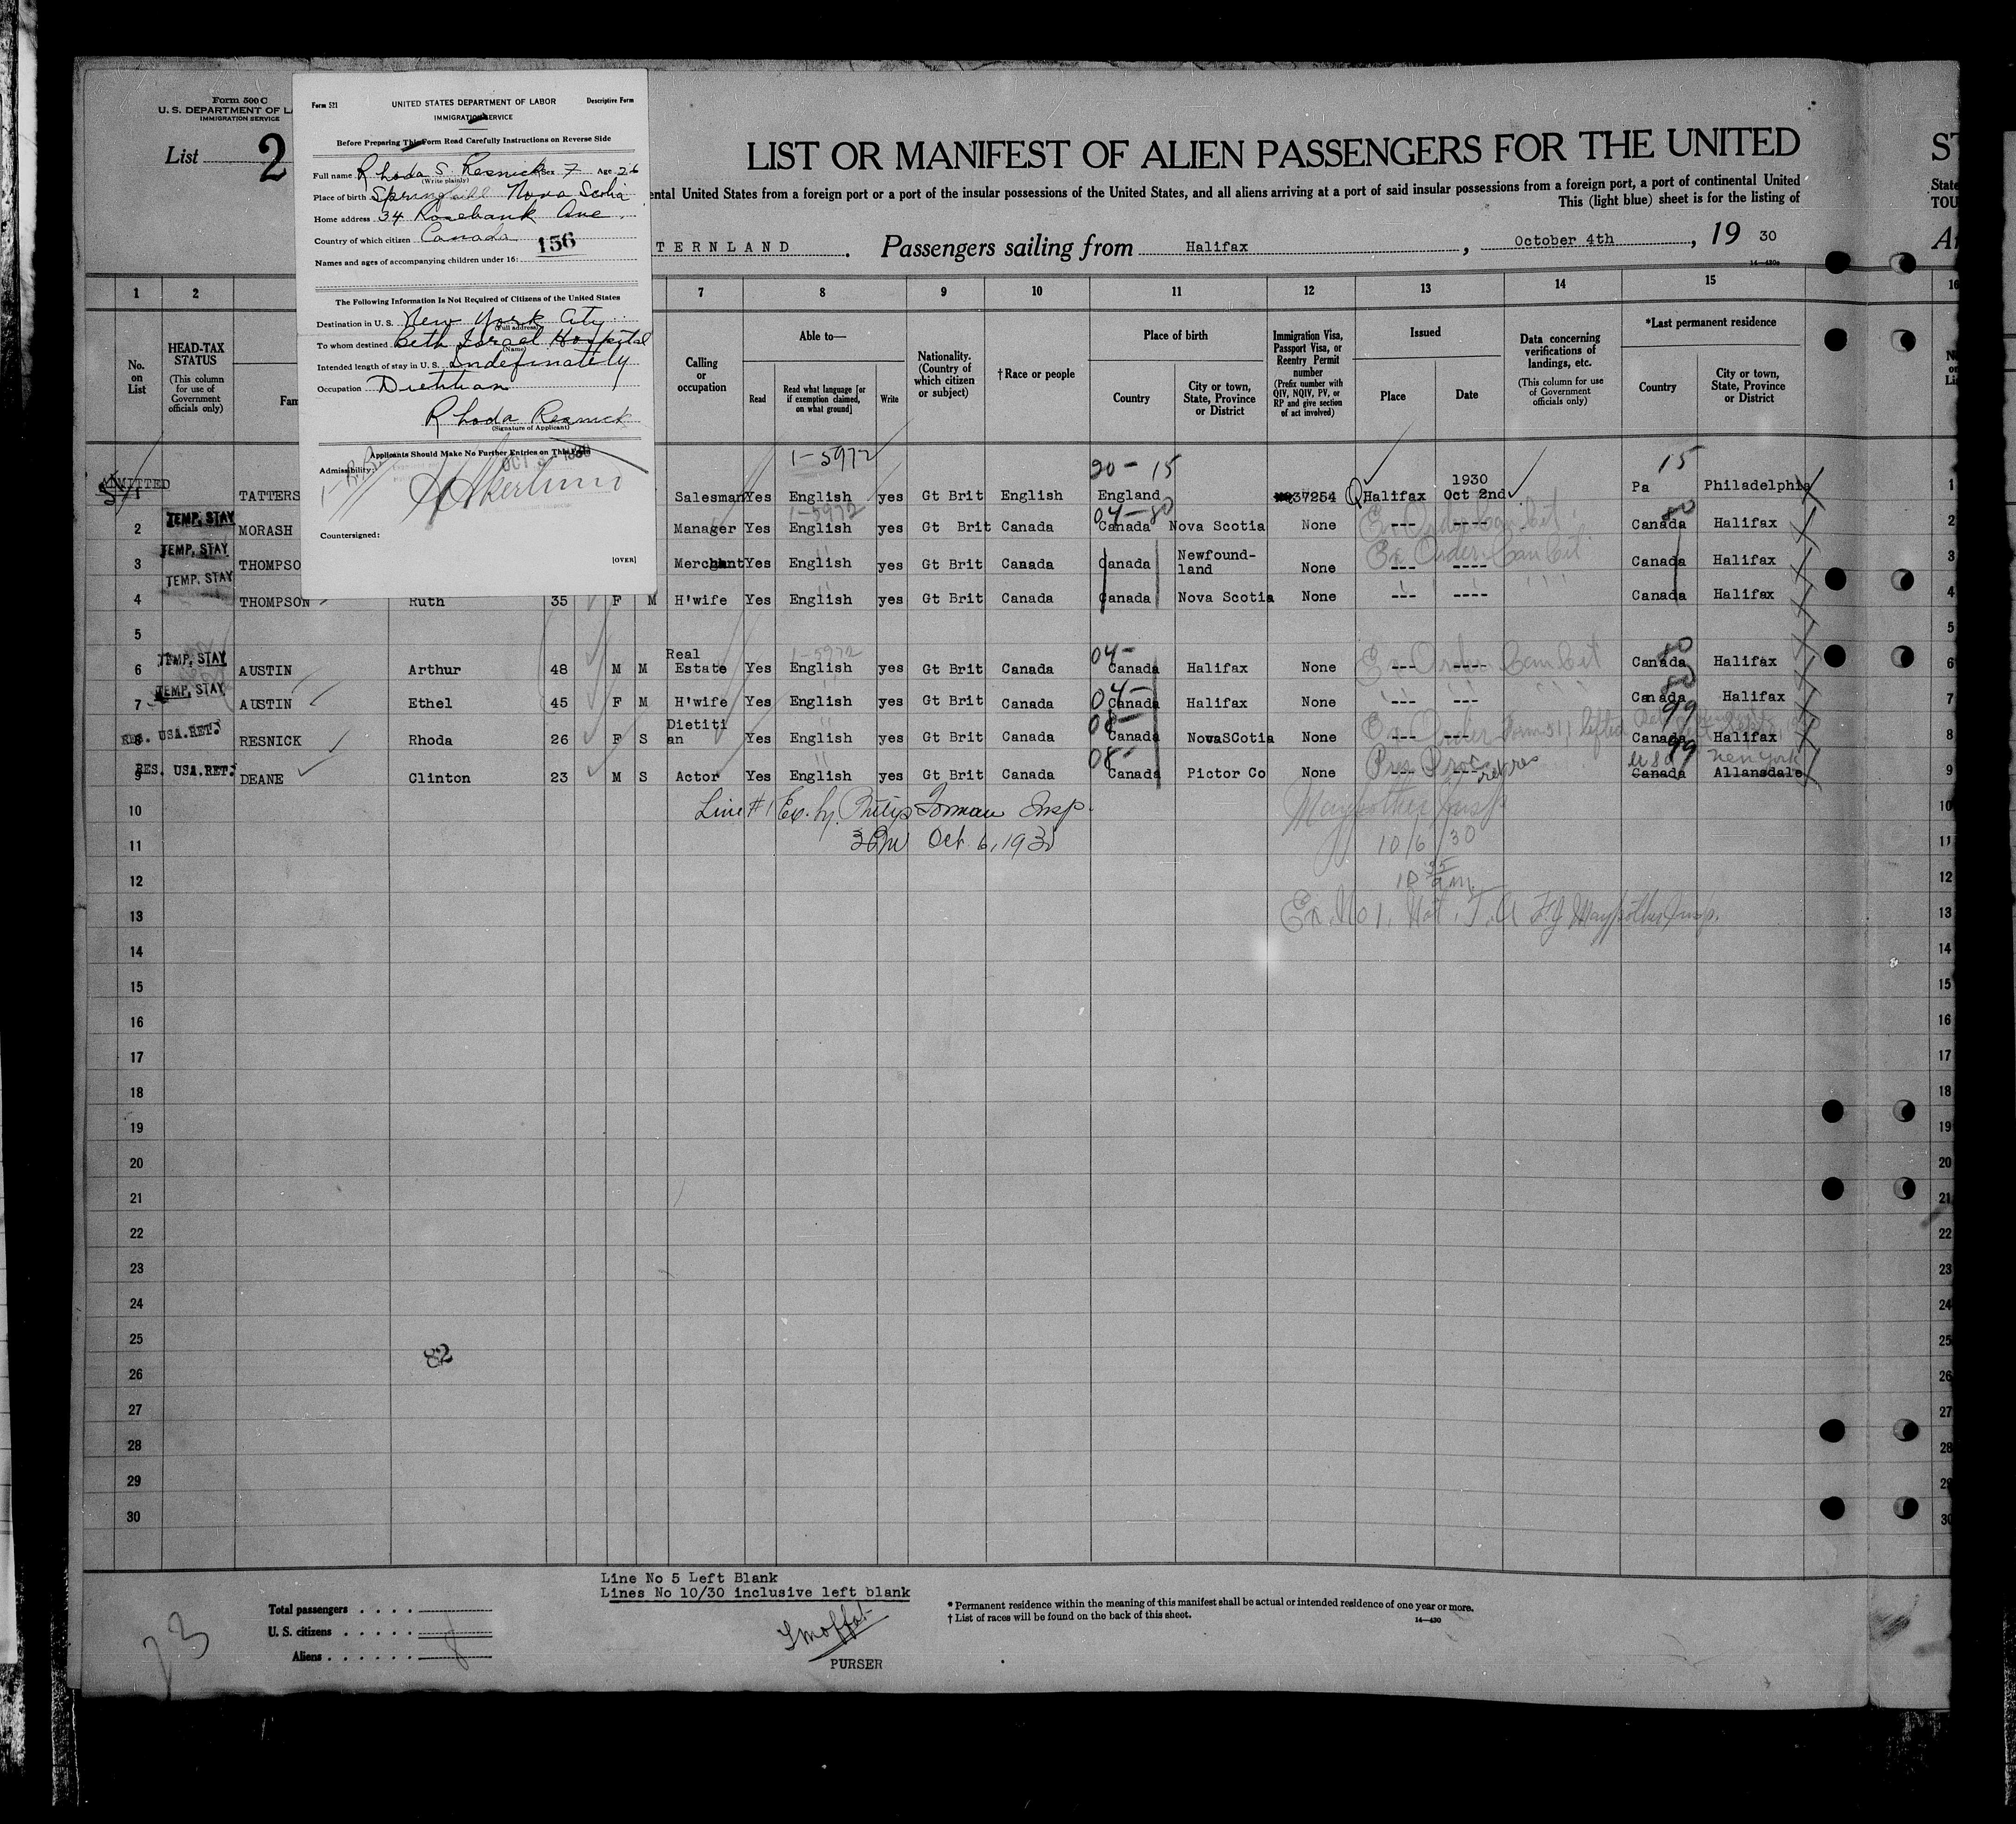 Form 500 C
U. S. DEPARTMENT OF LA
IMMIGRATION SERVICE
List 2
Form 521 UNITED STATES DEPARTMENT OF LABOR Descriptive Form
IMMIGRATION SERVICE
Before Preparing This Form Read Carefully Instructions on Reverse Side
Full name Rhoda S. Resnick Sex F Age 26
(Write plainly)
Place of birth Springhill Nova Scotia
Home address 34 Rosebank Ave.
Country of which citizen Canada
156
Names and ages of accompanying children under 16:
The Following Information Is Not Required of Citizens of the United States
Destination in U. S. New York City
(Full address)
To whom destined Beth Israel Hospital
(Name)
Intended length of stay in U. S. Indefinately
Occupation Dietitian
Rhoda Resnick
(Signature of Applicant)
Applicants Should Make No Further Entries on This Form
Admissibility:
OCT 1930
Countersigned:
[OVER]
LIST OR MANIFEST OF ALIEN PASSENGERS FOR THE UNITED
ental United States from a foreign port or a port of the insular possessions of the United States, and all aliens arriving at a port of said insular possessions from a foreign port, a port of continental United
This (light blue) sheet is for the listing of
TERNLAND . Passengers sailing from Halifax , October 4th , 19 30
14—430a
ST
State
TOU
1 2 7 8 9 10 11 12 13 14 15 16
No. on List
HEAD-TAX STATUS
(This column for use of Government officials only)
Fam
Calling or occupation
Able to—
Read
Read what language [or if exemption claimed, on what ground]
Write
Nationality. (Country of which citizen or subject)
†Race or people
Place of birth
Country
City or town, State, Province or District
Immigration Visa, Passport Visa, or Reentry Permit number
(Prefix number with QIV, NQIV, PV, or RP and give section of act involved)
Issued
Place
Date
Data concerning verifications of landings, etc.
(This column for use of Government officials only)
*Last permanent residence
Country
City or town, State, Province or District
1-5972 20-15 15
ADMITTED
1 TATTERS Salesman Yes English yes Gt Brit English England 37254 Halifax 1930 Oct 2nd Pa Philadelphia 1
1-5972 04-80 80
2 TEMP. STAY MORASH Manager Yes English yes Gt Brit Canada Canada Nova Scotia None --- ---- Canada Halifax 2
3 TEMP. STAY THOMPSO Merchant Yes English yes Gt Brit Canada Canada Newfound-land None --- ---- Canada Halifax 3
4 TEMP. STAY THOMPSON Ruth 35 F M H'wife Yes English yes Gt Brit Canada Canada Nova Scotia None --- ---- Canada Halifax 4
5 5
1-5972 04- 80
6 TEMP. STAY AUSTIN Arthur 48 M M Real Estate Yes English yes Gt Brit Canada Canada Halifax None --- ---- Canada Halifax 6
04- 80
7 TEMP. STAY AUSTIN Ethel 45 F M H'wife Yes English yes Gt Brit Canada Canada Halifax None --- Canada Halifax 7
08- 99
8 RES. USA. RET. RESNICK Rhoda 26 F S Dietitian Yes English yes Gt Brit Canada Canada NovaSCotia None --- --- Form 511 lifted Canada Halifax 8
08- 99 USA New York
9 RES. USA. RET. DEANE Clinton 23 M S Actor Yes English yes Gt Brit Canada Canada Pictor Co None --- --- Canada Allansdale 9
10 Line #1 Ex. by Philip Forman Insp. 10
11 3 PM Oct. 6, 1930 10/6/30 11
12 10 35 am 12
13 13
14 14
15 15
16 16
17 17
18 18
19 19
20 20
21 21
22 22
23 23
24 24
25 25
82
26 26
27 27
28 28
29 29
30 30
Line No 5 Left Blank
Lines No 10/30 inclusive left blank
Total passengers
U. S. citizens
Aliens
PURSER
* Permanent residence within the meaning of this manifest shall be actual or intended residence of one year or more.
† List of races will be found on the back of this sheet.
14—430